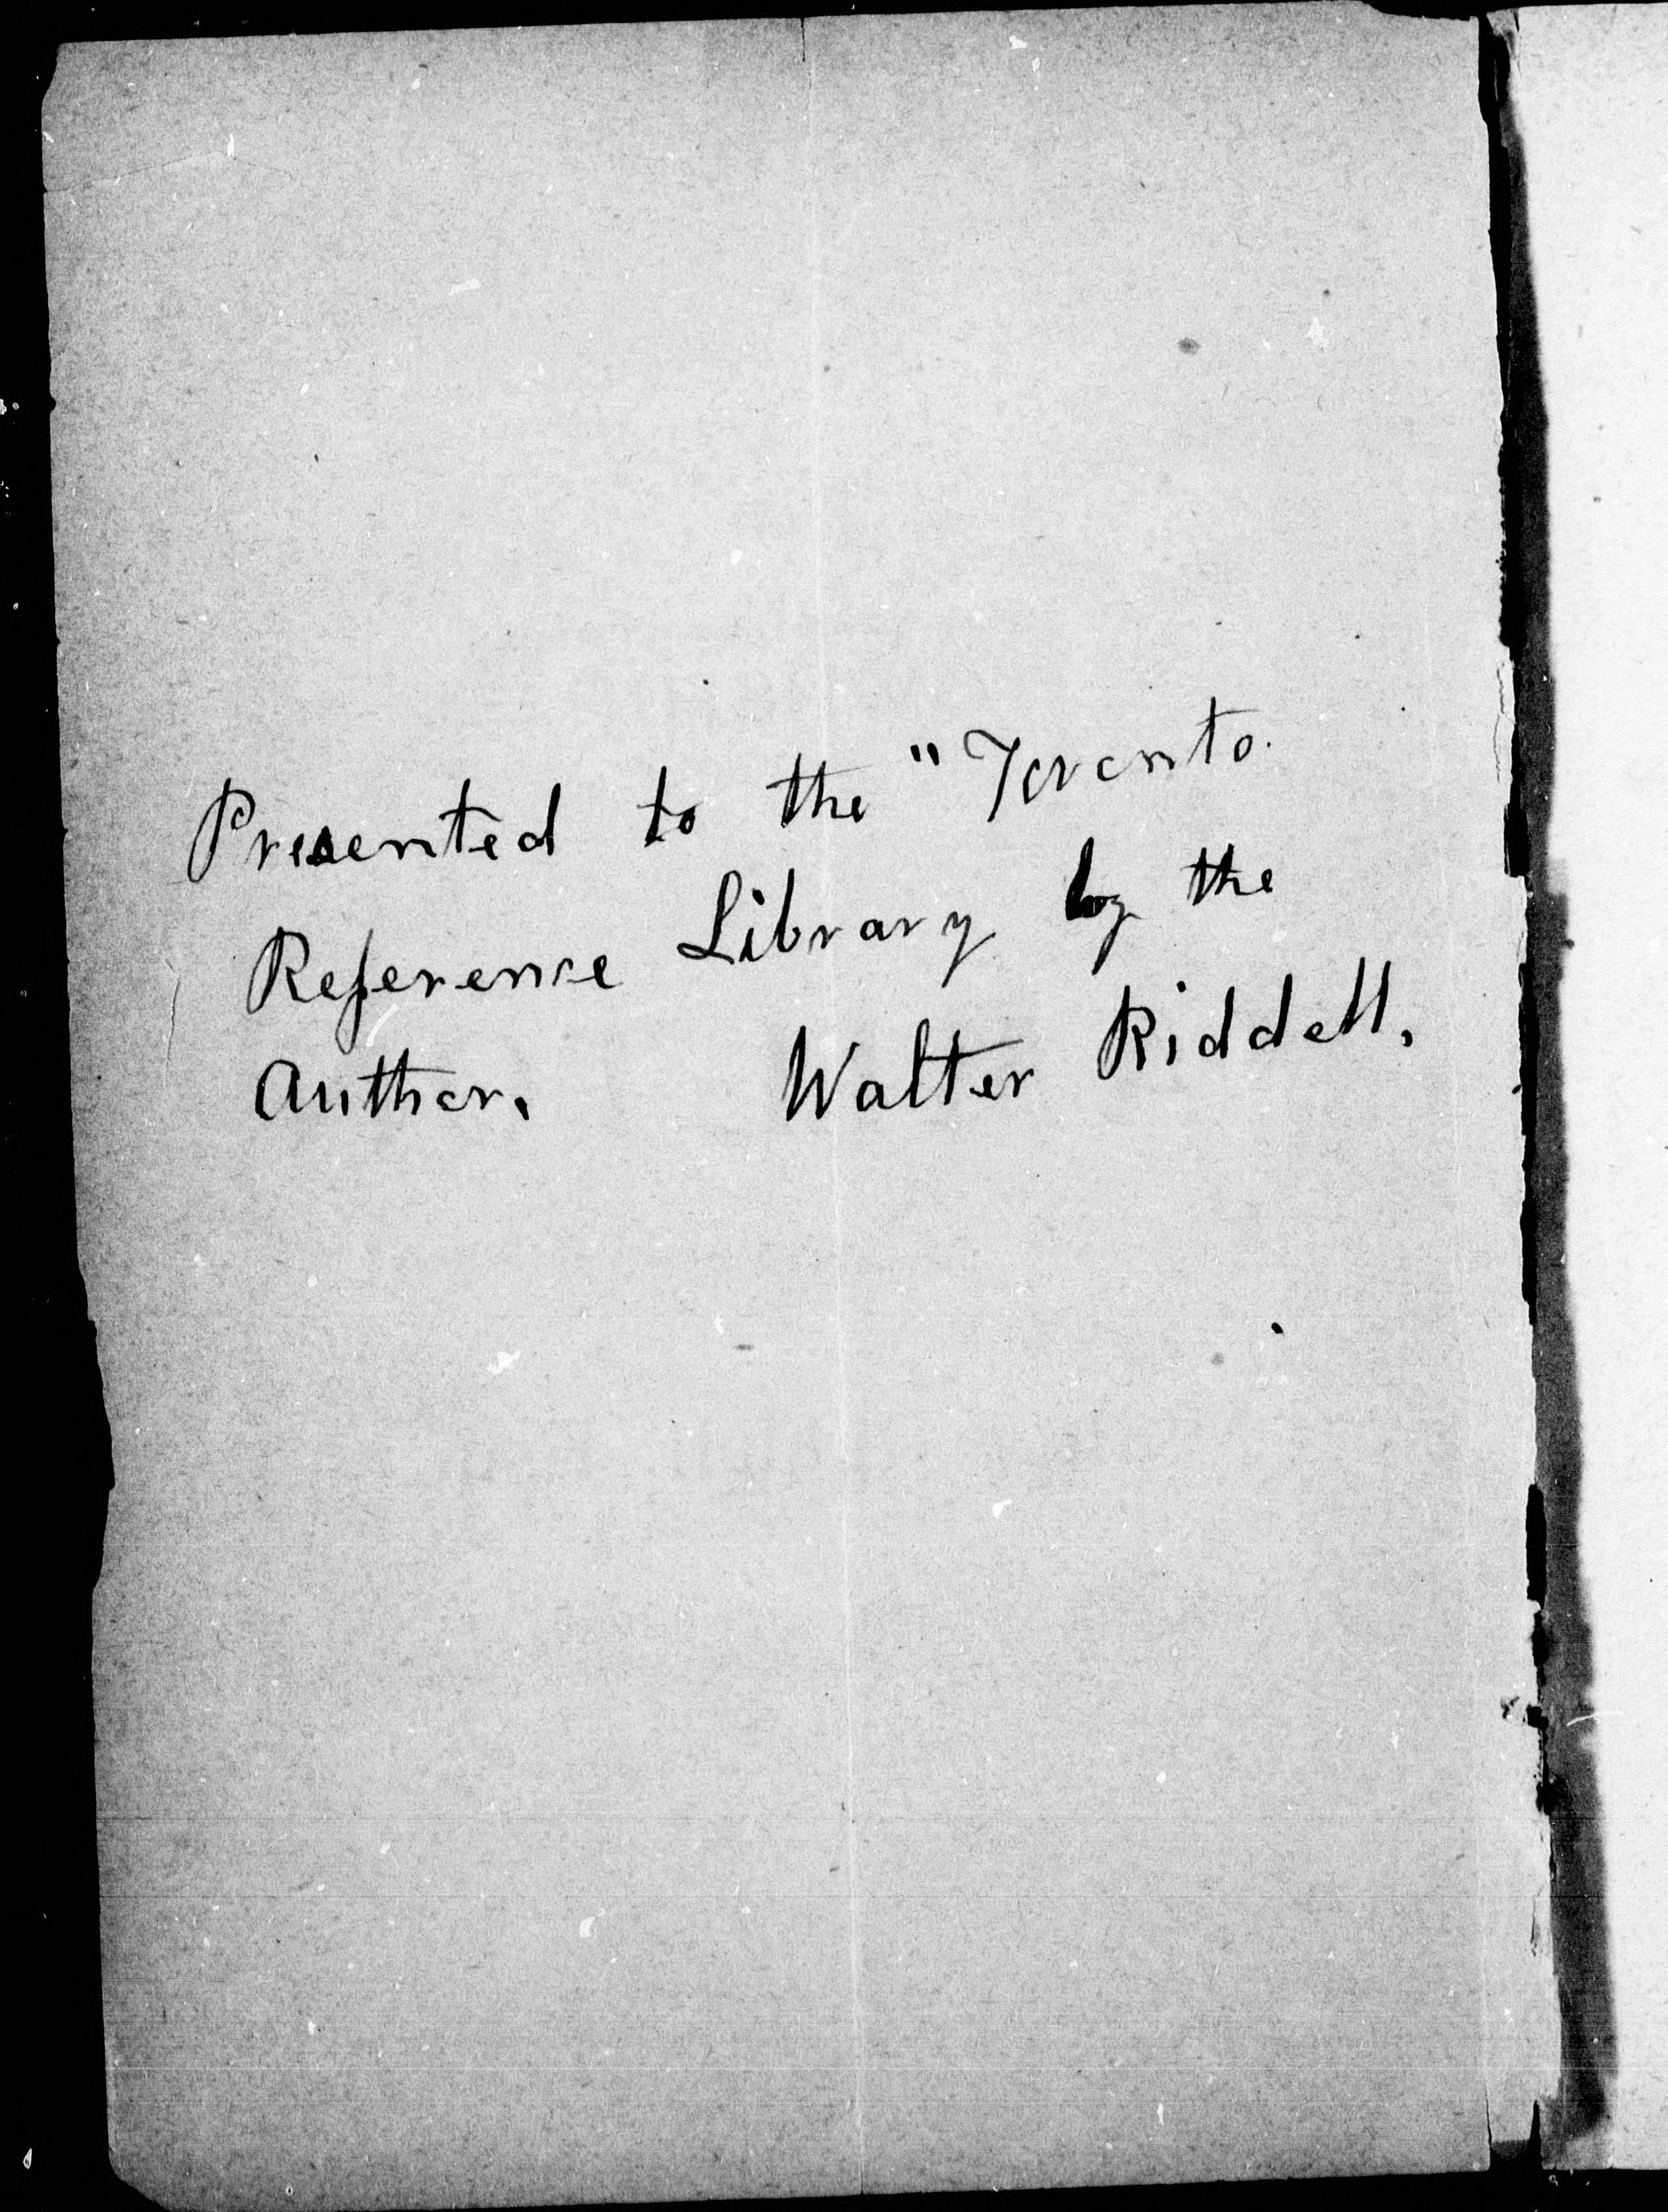 Presented to the "Toronto
Reference Library by the
Author. Walter Riddell.